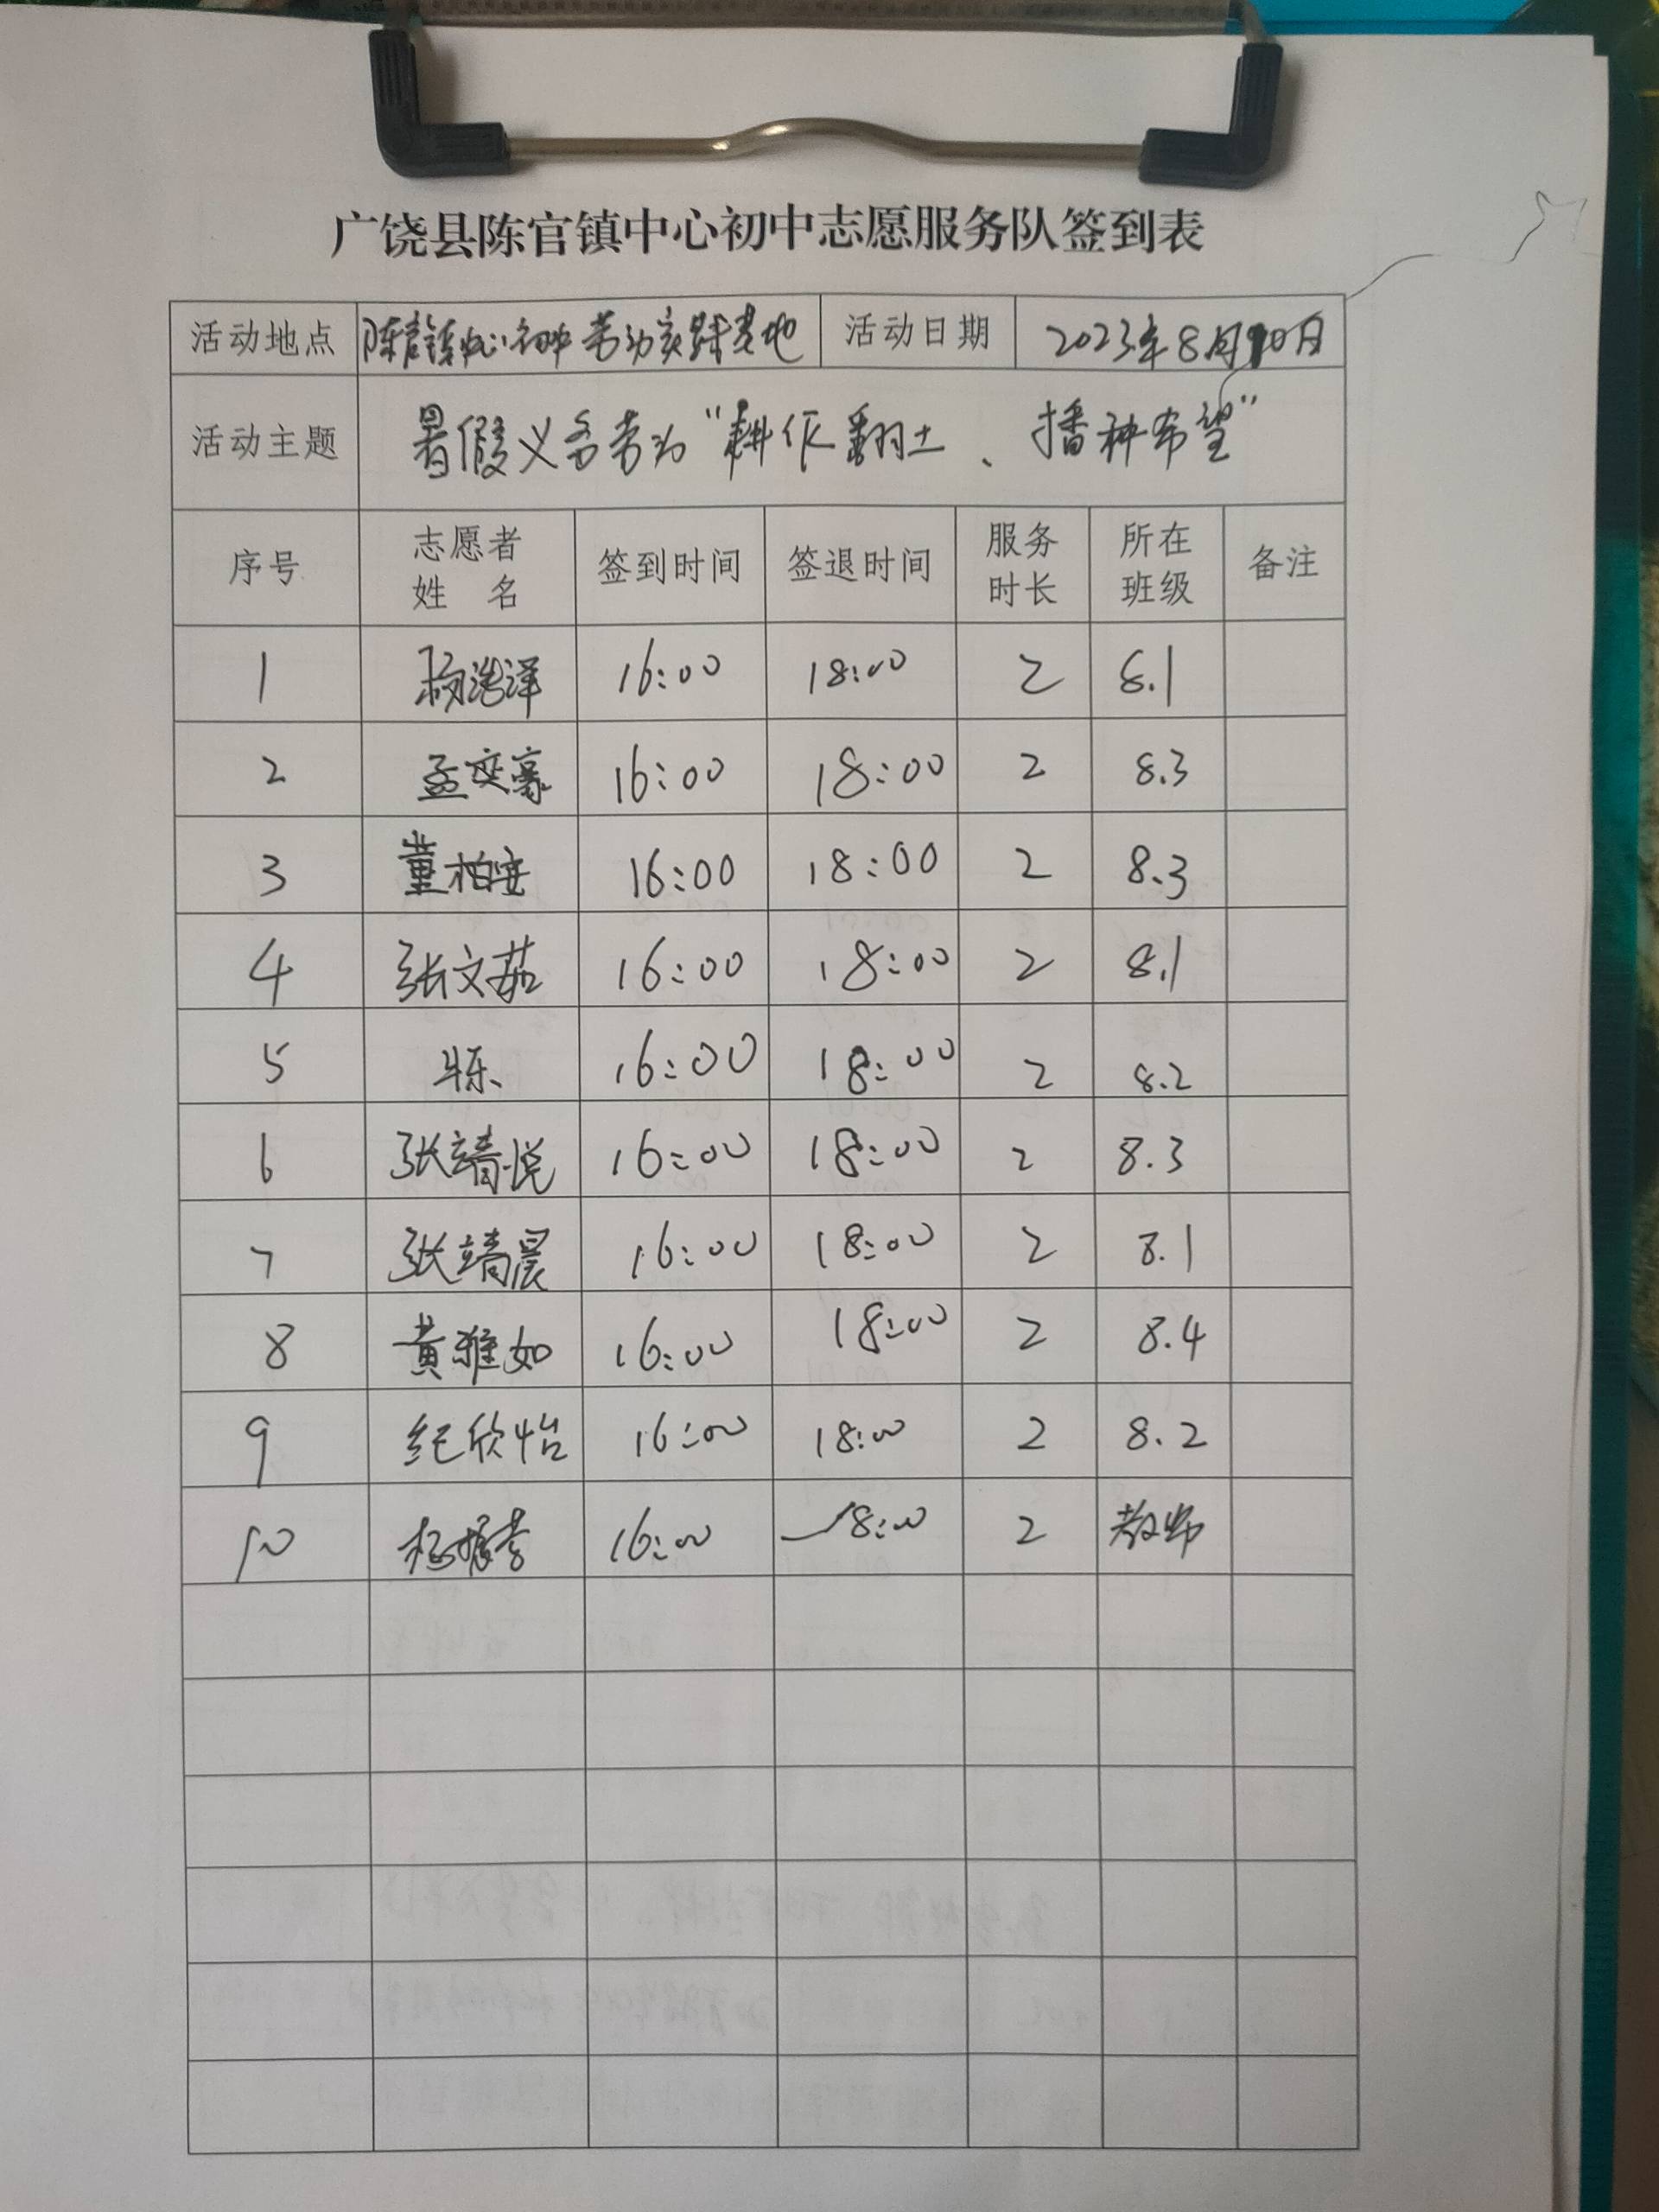 广饶县陈官镇中心初中志愿服务队签到表
活动地点 陈官镇中心初中劳动实践基地 活动日期 2023年8月10日
活动主题 暑假义务劳动“耕作翻土、播种希望”
序号 志愿者姓 名 签到时间 签退时间 服务时长 所在班级 备注
1 杨浩泽 16:00 18:00 2 8.1
2 孟奕豪 16:00 18:00 2 8.3
3 董柏安 16:00 18:00 2 8.3
4 张文茹 16:00 18:00 2 8.1
5 16:00 18:00 2 8.2
6 张靖悦 16:00 18:00 2 8.3
7 张靖晨 16:00 18:00 2 8.1
8 黄雅如 16:00 18:00 2 8.4
9 纪欣怡 16:00 18:00 2 8.2
10 16:00 18:00 2 教师